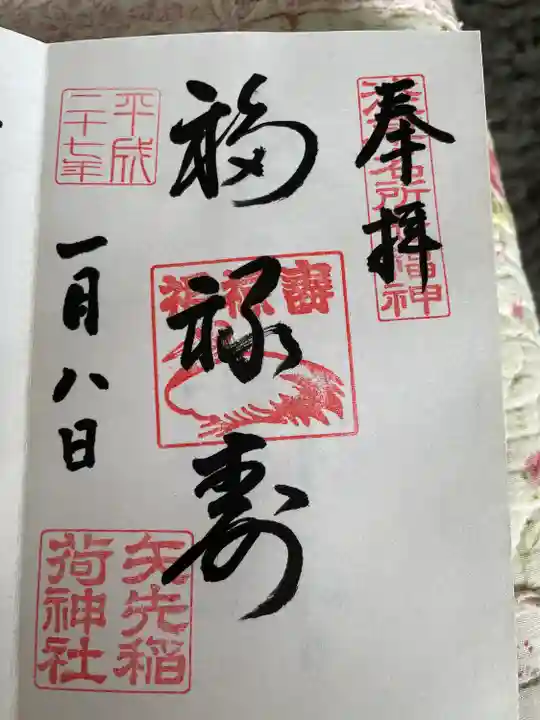 奉拝
浅草名所七福神
福禄寿
福禄寿
平成
二十七年
一月八日
矢先稲
荷神社